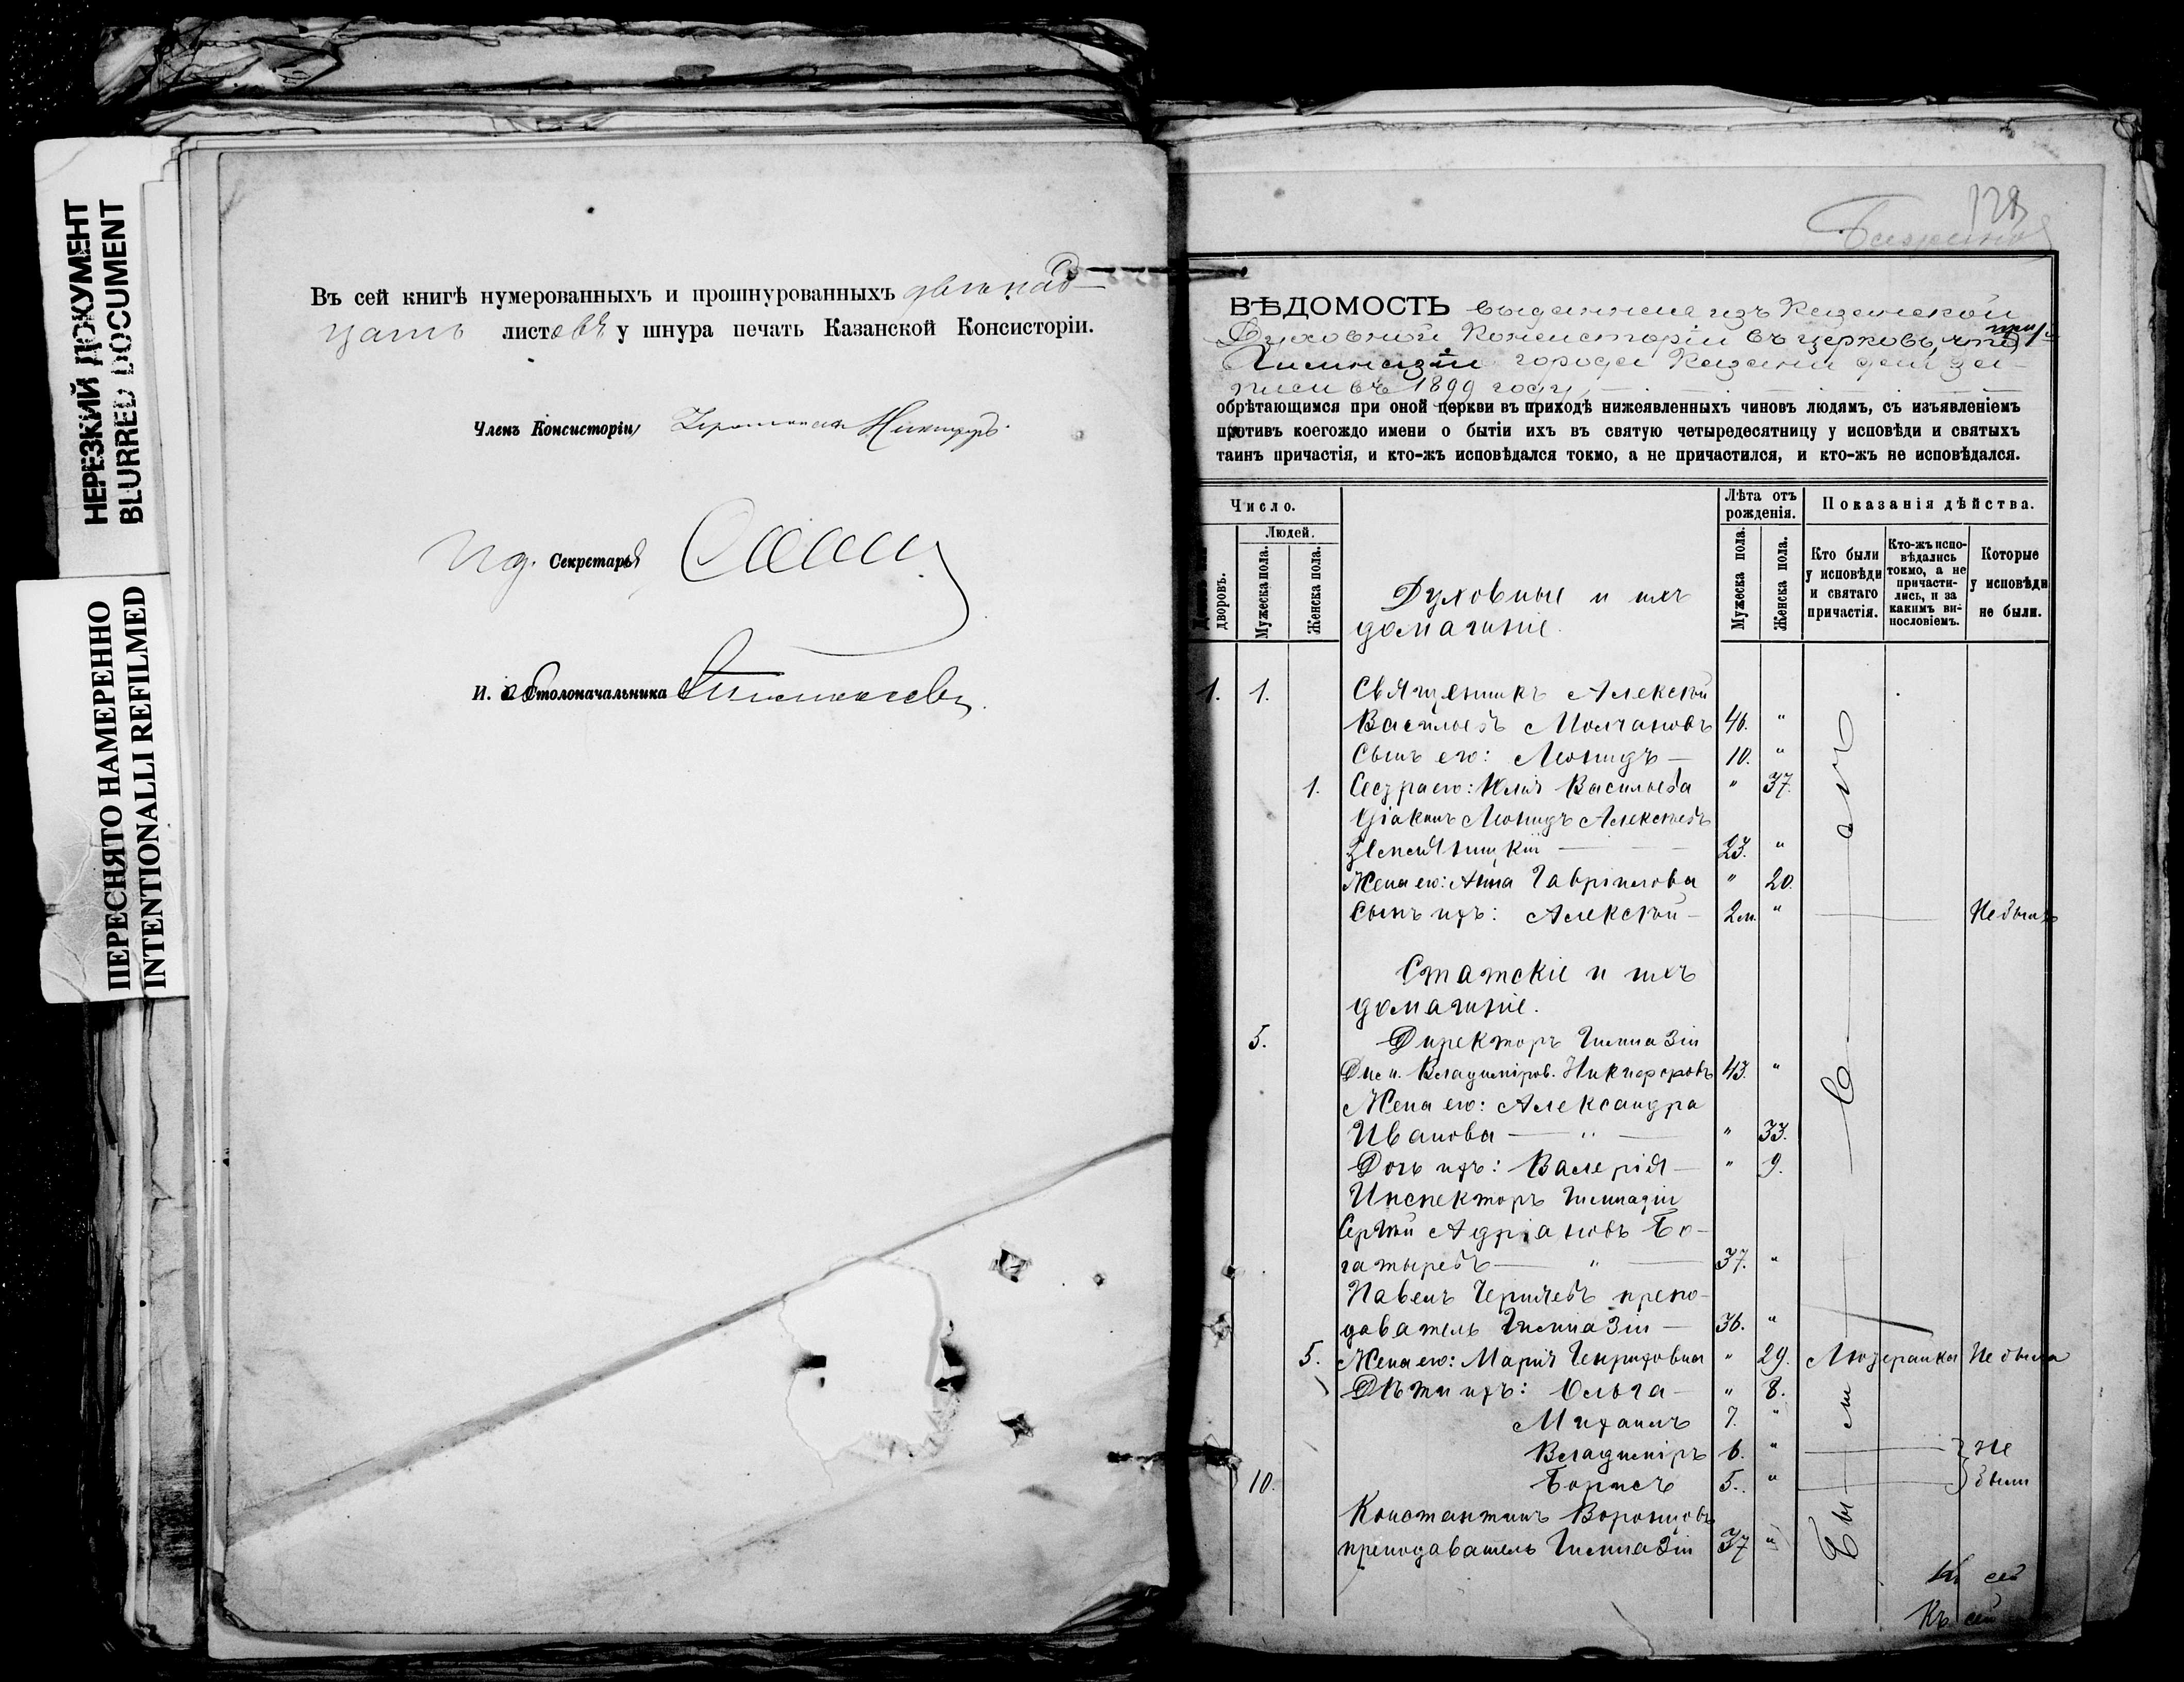 НЕРЕЗКИЙ ДОКУМЕНТ
BLURRED DOCUMENT
ПЕРЕСНЯТО НАМЕРЕННО
INTENTIONALLI REFILMED
Въ сей книгѣ нумерованныхъ и прошнурованныхъ двѣнад-
цать листовъ у шнура печать Казанской Консисторіи.
Членъ Консисторіи
И д. Секретаря
И. об Столоначальника
128
ВѢДОМОСТЬ выданная изъ Казанской
Духовной Консисторіи въ церковь, что при 1й
Гимназіи города Казани для за-
писи въ 1899 году,
обрѣтающимся при оной церкви въ приходѣ нижеявленныхъ чиновъ людямъ, съ изъявленіемъ
противъ коегождо имени о бытіи ихъ въ святую четыредесятницу у исповѣди и святыхъ
таинъ причастія, и кто-жъ исповѣдался токмо, а не причастился, и кто-жъ не исповѣдался.
Число.
Людей.
дворовъ.
Мужеска пола.
Женска пола.
Лѣта отъ рожденія.
Мужеска пола.
Женска пола.
Показанія дѣйства.
Кто были у исповѣди и святаго причастія.
Кто-жъ исповѣдались токмо, а не причастились, и за какимъ винословіемъ.
Которые у исповѣди не были.
Духовные и ихъ
домашніе.
1. 1. Священникъ Алексѣй
Васильевъ Молчановъ 46. "
Сынъ его: Леонидъ — 10. "
1. Сестра его: Юлія Васильева " 37.
Діаконъ Леонидъ Алексѣевъ
23. "
Жена его: Анна Гавріилова " 20.
Сынъ ихъ: Алексѣй — 2 м. " Не былъ
Статскіе и ихъ
домашніе.
5. Директоръ Гимназіи
Дм. и. Владиміров. Никифоровъ 43. "
Жена его: Александра
Иванова — " — " 33.
Дочь ихъ: Валерія — " 9.
Инспекторъ Гимназіи
Сергѣй Адріановъ Бо-
гатыревъ — " — 37. "
Павелъ Черняевъ препо-
даватель Гимназіи — 36. "
5. Жена его: Марія Генриховна " 29. Лютеранка Не была
Дѣти ихъ: Ольга — " 8.
Михаилъ 7. "
Владиміръ 6. " Не
10. Борисъ 5. " были
Константинъ Воронцовъ
преподаватель Гимназіи 37 "
Къ сей
Къ сей